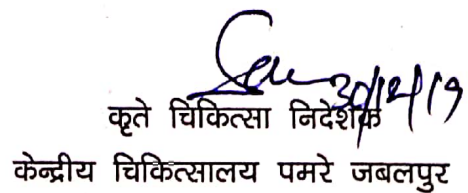 30/12/19
कृते चिकित्सा निदेशक
केन्द्रीय चिकित्सालय पमरे जबलपुर